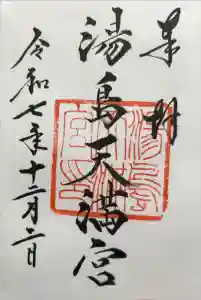 奉拝
湯島天満宮
令和七年十二月二日